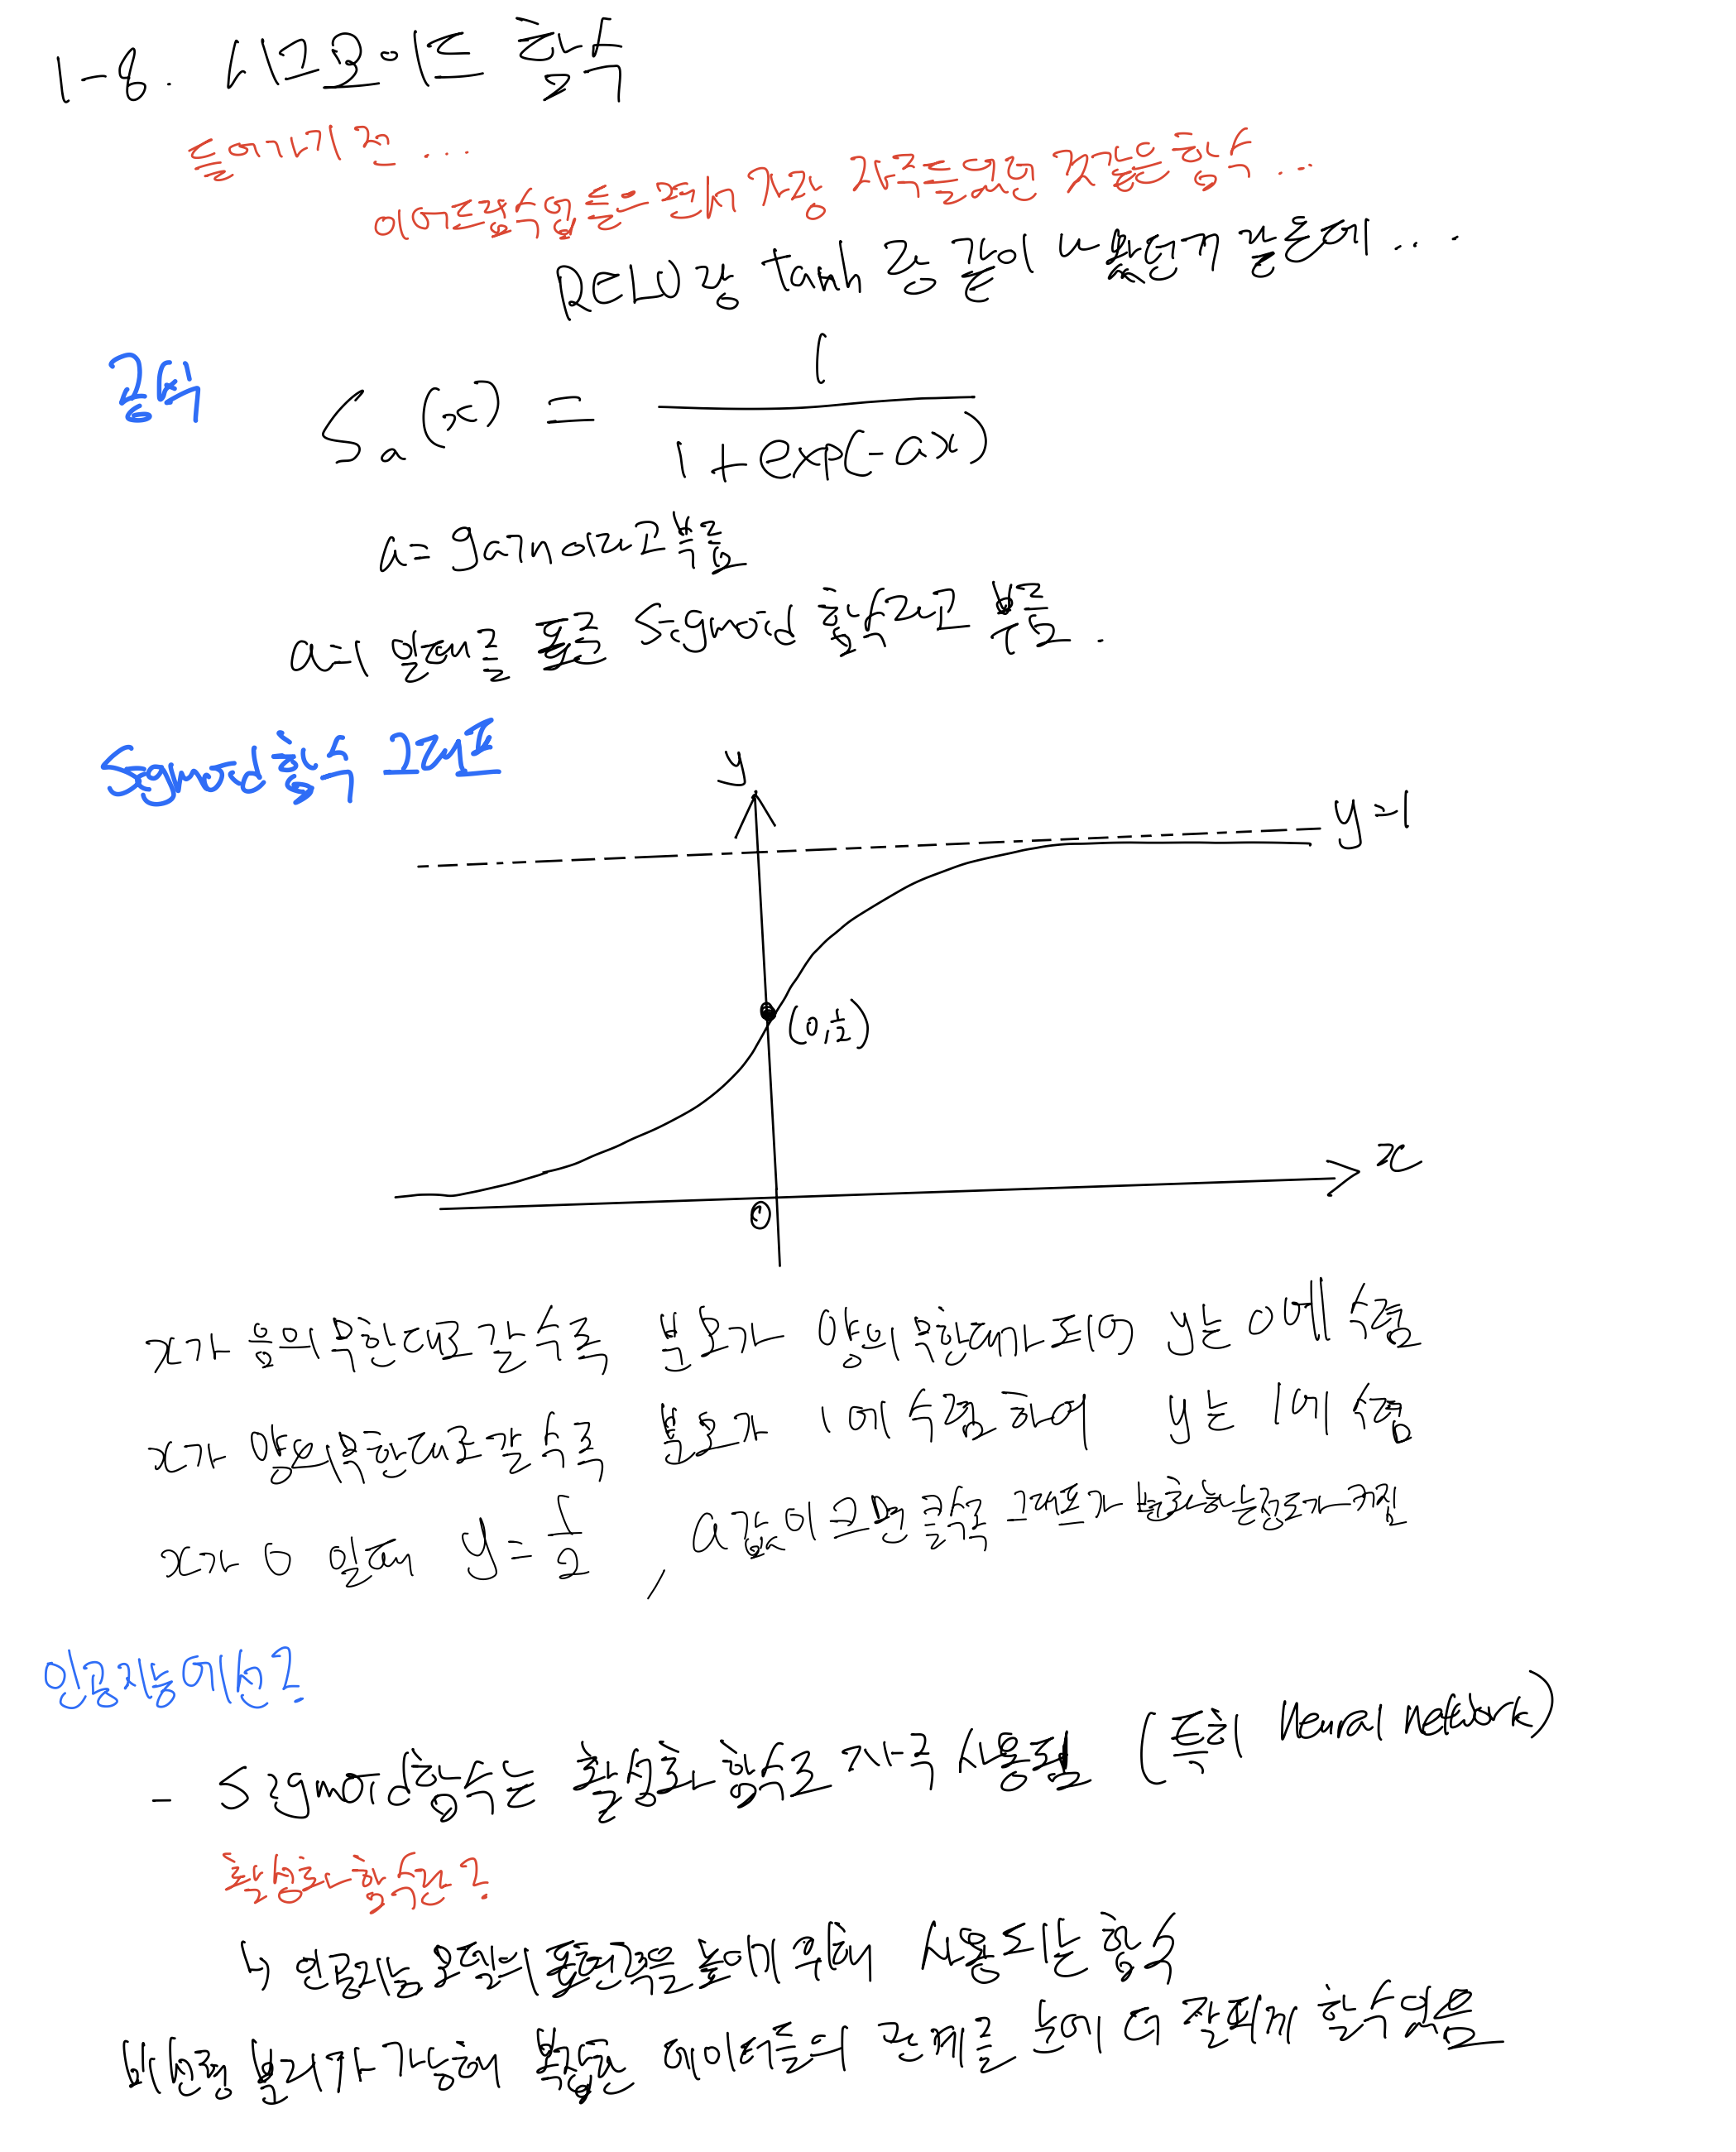 1-8. 시그모이드 함수
들어가기 전...
이어드림수업들으면서 가장 자주들었던 것같은 함수...
RELU랑 tanh 랑 같이 나왔던거 같은데...
공식
Sa(x) = 1 / (1+exp(-ax))
a= gain이라고 부름
a=1 일때를 표준 Sigmoid 함수라고 부름.
Sigmoid함수 그래프
y
y=1
(0,1/2)
x
0
x가 음의 무한대로 갈수록 분모가 양의무한대가 되어 y는 0에 수렴
x가 양의무한대로갈수록 분모가 1에 수렴하여 y는 1에 수렴
x가 0 일때 y=1/2 , a값이 크면 클수록 그래프가 변화하는정도가 커짐
인공지능에선?
- Sigmoid함수는 활성화 함수로 자주 사용됨 (특히 Neural Network)
활성화 함수란?
↳ 인공지능 모델의 표현력을 높이기 위해 사용되는 함수
비선형 분리가 가능해 복잡한 데이터들의 관계를 눈에 더 잘띄게 할수있음